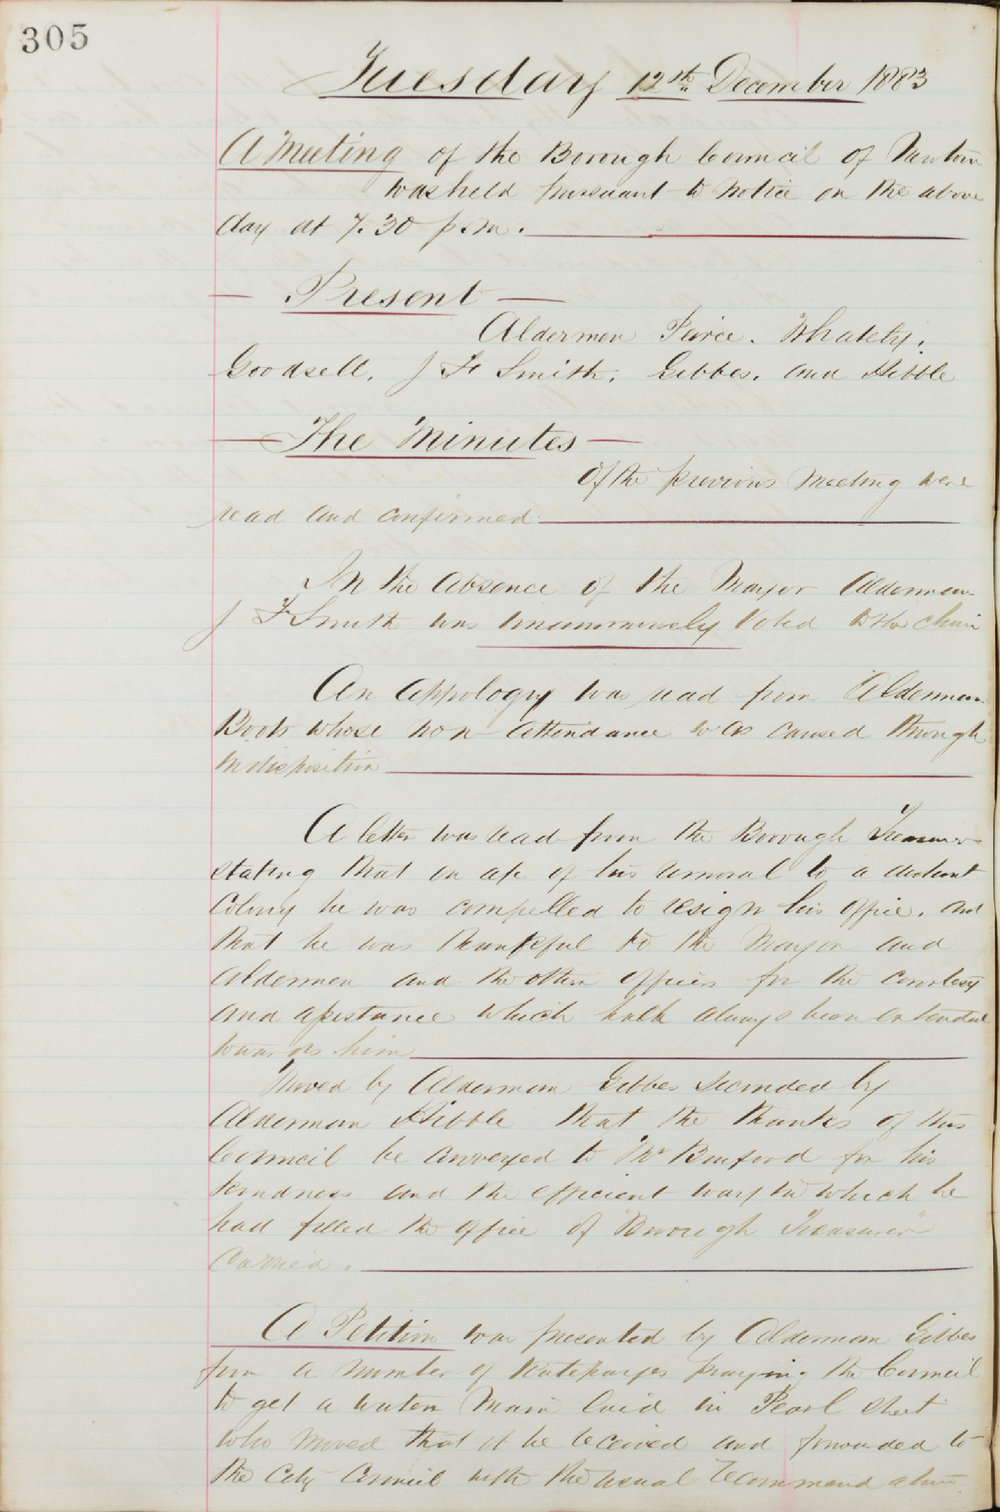 305
Tuesday 12th December 1883
A Meeting of the Borough Council of Newtown
was held pursuant to notice on the above
day at 7.30 p.m.
Present
Aldermen Peirce. Whately.
Goodsell. J F Smith. Gibbes. and Hibble
The Minutes
of the previous meeting were
read and confirmed
In the absence of the Mayor Alderman
J F Smith was unanimously Voted to the chair
An appology was read from Alderman
Boots whose non attendance was caused through
indisposition
A letter was read from the Borough Treasurer
stating that on a/c of his removal to a distant
Colony he was compelled to resign his office. and
that he was thankful to the Mayor and
Aldermen and the other officers for the courtesy
and assistance which hath always been extended
towards him
Moved by Alderman Gibbes seconded by
Alderman Hibble that the thanks of this
Council be conveyed to Mr for his
kindness and the efficient way in which he
had filled the office of "Borough Treasurer"
Carried.
A Petition was presented by Alderman Gibbes
from a number of Ratepayers praying the Council
to get a water main laid in Pearl street
who moved that it be received and forwarded to
the City Council with the usual recommendation